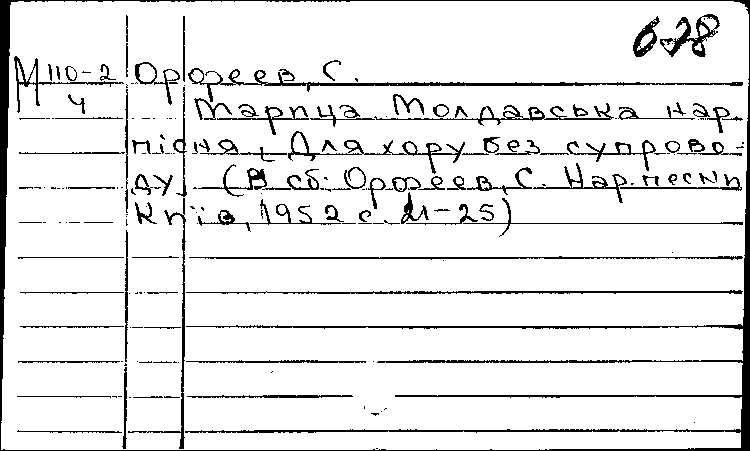 678
М 110-2 Орфеев, С.
4 Марица. Молдавська нар.
пісня. Для хору без супрово-
ду. (В сб: Орфеев, С. Нар. песни
Київ, 1952 с. 21-25)